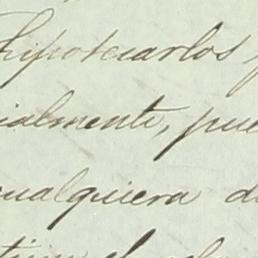 hipotecarlos
ialmente, pue
cualquiera d